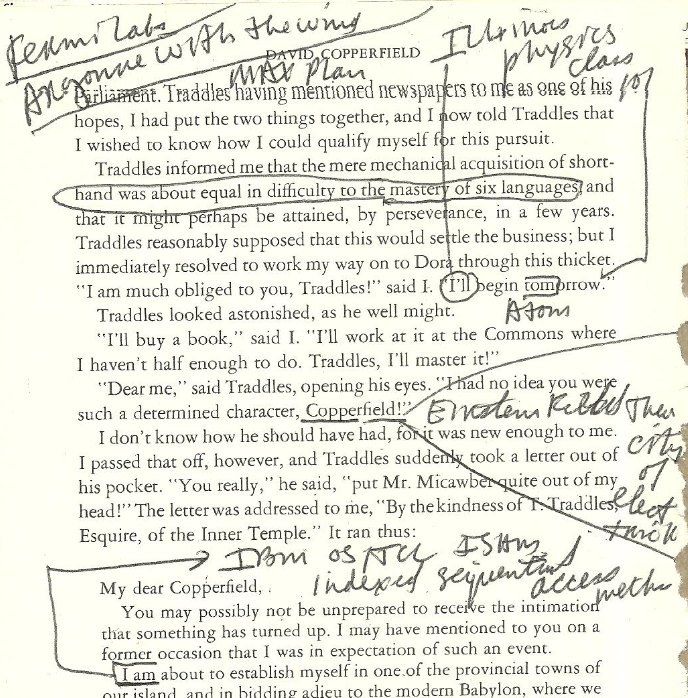 Fermi labs
Argonne with the wing
DAVID COPPERFIELD
Illinois
physics
class
MAX Plan
Parliament. Traddles having mentioned newspapers to me as one of his
hopes, I had put the two things together, and I now told Traddles that
I wished to know how I could qualify myself for this pursuit.
Traddles informed me that the mere mechanical acquisition of short-
hand was about equal in difficulty to the mastery of six languages, and
that it might perhaps be attained, by perseverance, in a few years.
Traddles reasonably supposed that this would settle the business; but I
immediately resolved to work my way on to Dora through this thicket.
"I am much obliged to you, Traddles!" said I. "I'll begin tomorrow."
Traddles looked astonished, as he well might.
Atom
"I'll buy a book," said I. "I'll work at it at the Commons where
I haven't half enough to do. Traddles, I'll master it!"
"Dear me," said Traddles, opening his eyes. "I had no idea you were
such a determined character, Copperfield!"
Einstein
city
of
I don't know how he should have had, for it was new enough to me.
I passed that off, however, and Traddles suddenly took a letter out of
his pocket. "You really," he said, "put Mr. Micawber quite out of my
head!" The letter was addressed to me, "By the kindness of T. Traddles,
Esquire, of the Inner Temple." It ran thus:
IBM OS
indexed sequential
access
My dear Copperfield,
You may possibly not be unprepared to receive the intimation
that something has turned up. I may have mentioned to you on a
former occasion that I was in expectation of such an event.
I am about to establish myself in one of the provincial towns of
our island, and in bidding adieu to the modern Babylon, where we